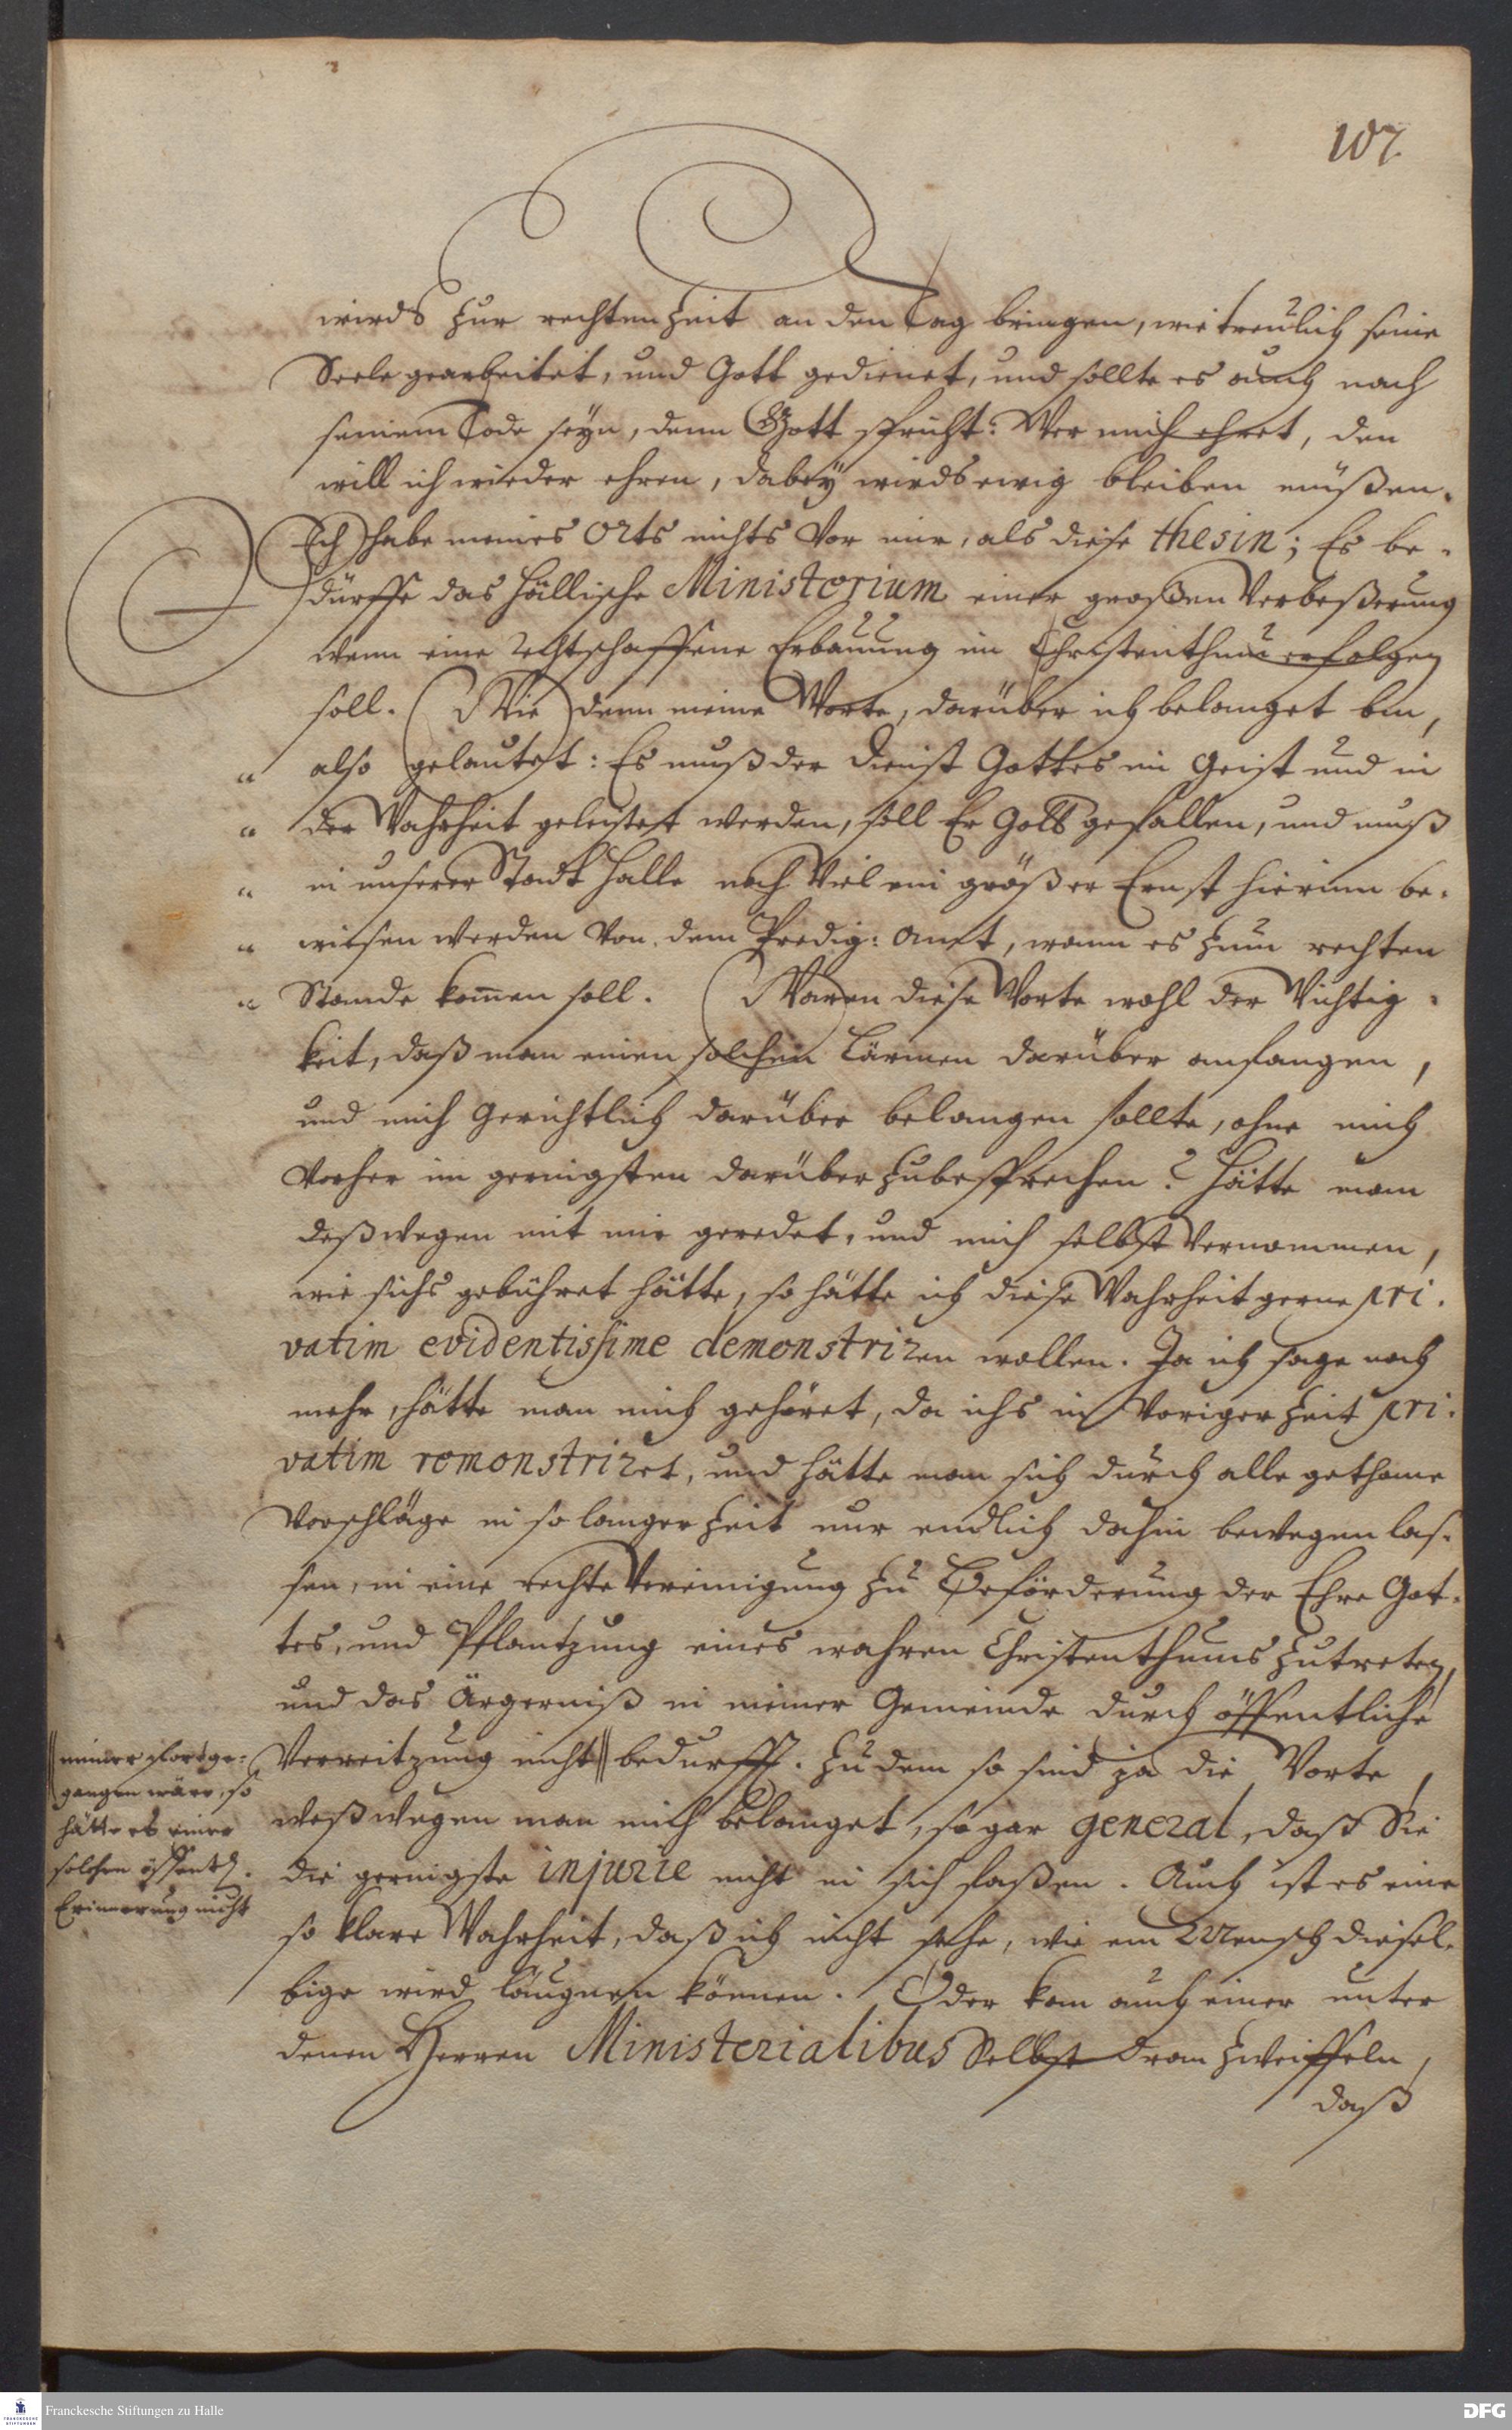 107.
wirds zur rechten Zeit an den Tag bringen, wie treulich seine
Seele gearbeitet, und Gott gedienet, und sollte es auch nach
seinem Tode seyn, denn Gott spricht: Wer mich ehret, den
will ich wieder ehren, dabey wirds ewig bleiben müßen.
Ich habe meines Orts nichts vor mir, als diese thesin; Es be-
dürffe das Hällische Ministerium einer großen Verbeßerung
wenn eine rechtschaffene Erbauung im Christenthum erfolgen
soll. Wie denn meine Worte, darüber ich belanget bin,
" also gelautet: Es muß der Dienst Gottes im Geist und in
" der Wahrheit geleistet werden, soll Er Gott gefallen, und muß
" in unserer Stadt Halle noch viel ein größer Ernst hierinn be-
" wiesen werden von dem Predig-Amt, wann es zum rechten
" Stande kom̄en soll. Waren diese Worte wohl der Wichtig-
keit, daß man einen solchen Lärmen darüber anfangen,
und mich Gerichtlich darüber belangen sollte, ohne mich
vorher im geringsten darüber zubesprechen? Hätte man
deßwegen mit mir geredet, und mich selbst vernommen,
wie sichs gebühret hätte, so hätte ich diese Wahrheit gerne pri-
vatim evidentissime demonstriren wollen. Ja ich sage noch
mehr, hätte man mich gehöret, da ichs in voriger Zeit pri-
vatim remonstriret, und hätte man sich durch alle gethane
Vorschläge in so langer Zeit nur endlich dahin bewegen las-
sen, in eine rechte Vereinigung zu Beförderung der Ehre Got-
tes, und Pflantzung eines wahren Christenthums zutreten,
und das Ärgerniß in meiner Gemeinde durch öffentliche
Verreitzung nicht || bedurfft. Zu dem so sind ja die Worte,
|| immer fortge-
gangen wäre, so
hätte es einer
solchen öffentl.
Erinnerung nicht
weßwegen man mich belanget, so gar general, daß Sie
die geringste injurie nicht in sich faßen. Auch ist es eine
so klare Wahrheit, daß ich nicht sehe, wie ein Mensch diesel-
bige wird läugnen können. Oder kan auch einer unter
denen Herren Ministerialibus Selbst dran zweiffeln,
daß
Franckesche Stiftungen zu Halle
DFG